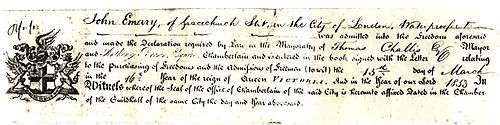 John Emery, of Gracechurch Str., in the City of London, Waterproofer
was admitted into the Freedom aforesaid
and made the Declaration required by Law in the Mayoralty of Thomas Challis Mayor
and Chamberlain and is entered in the book signed with the Letter relating
to the Purchasing of Freedoms and the Admissions of Freemen (to wit) the 15th day of March
in the 16th Year of the reign of Queen VICTORIA. And in the Year of our Lord 1853 In
Witness whereof the Seal of the Office of Chamberlain of the said City is hereunto affixed Dated in the Chamber
of the Guildhall of the same City the day and Year abovesaid.